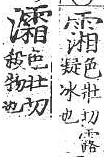 色壯切露
凝冰也
灀
色壯切
殺物也